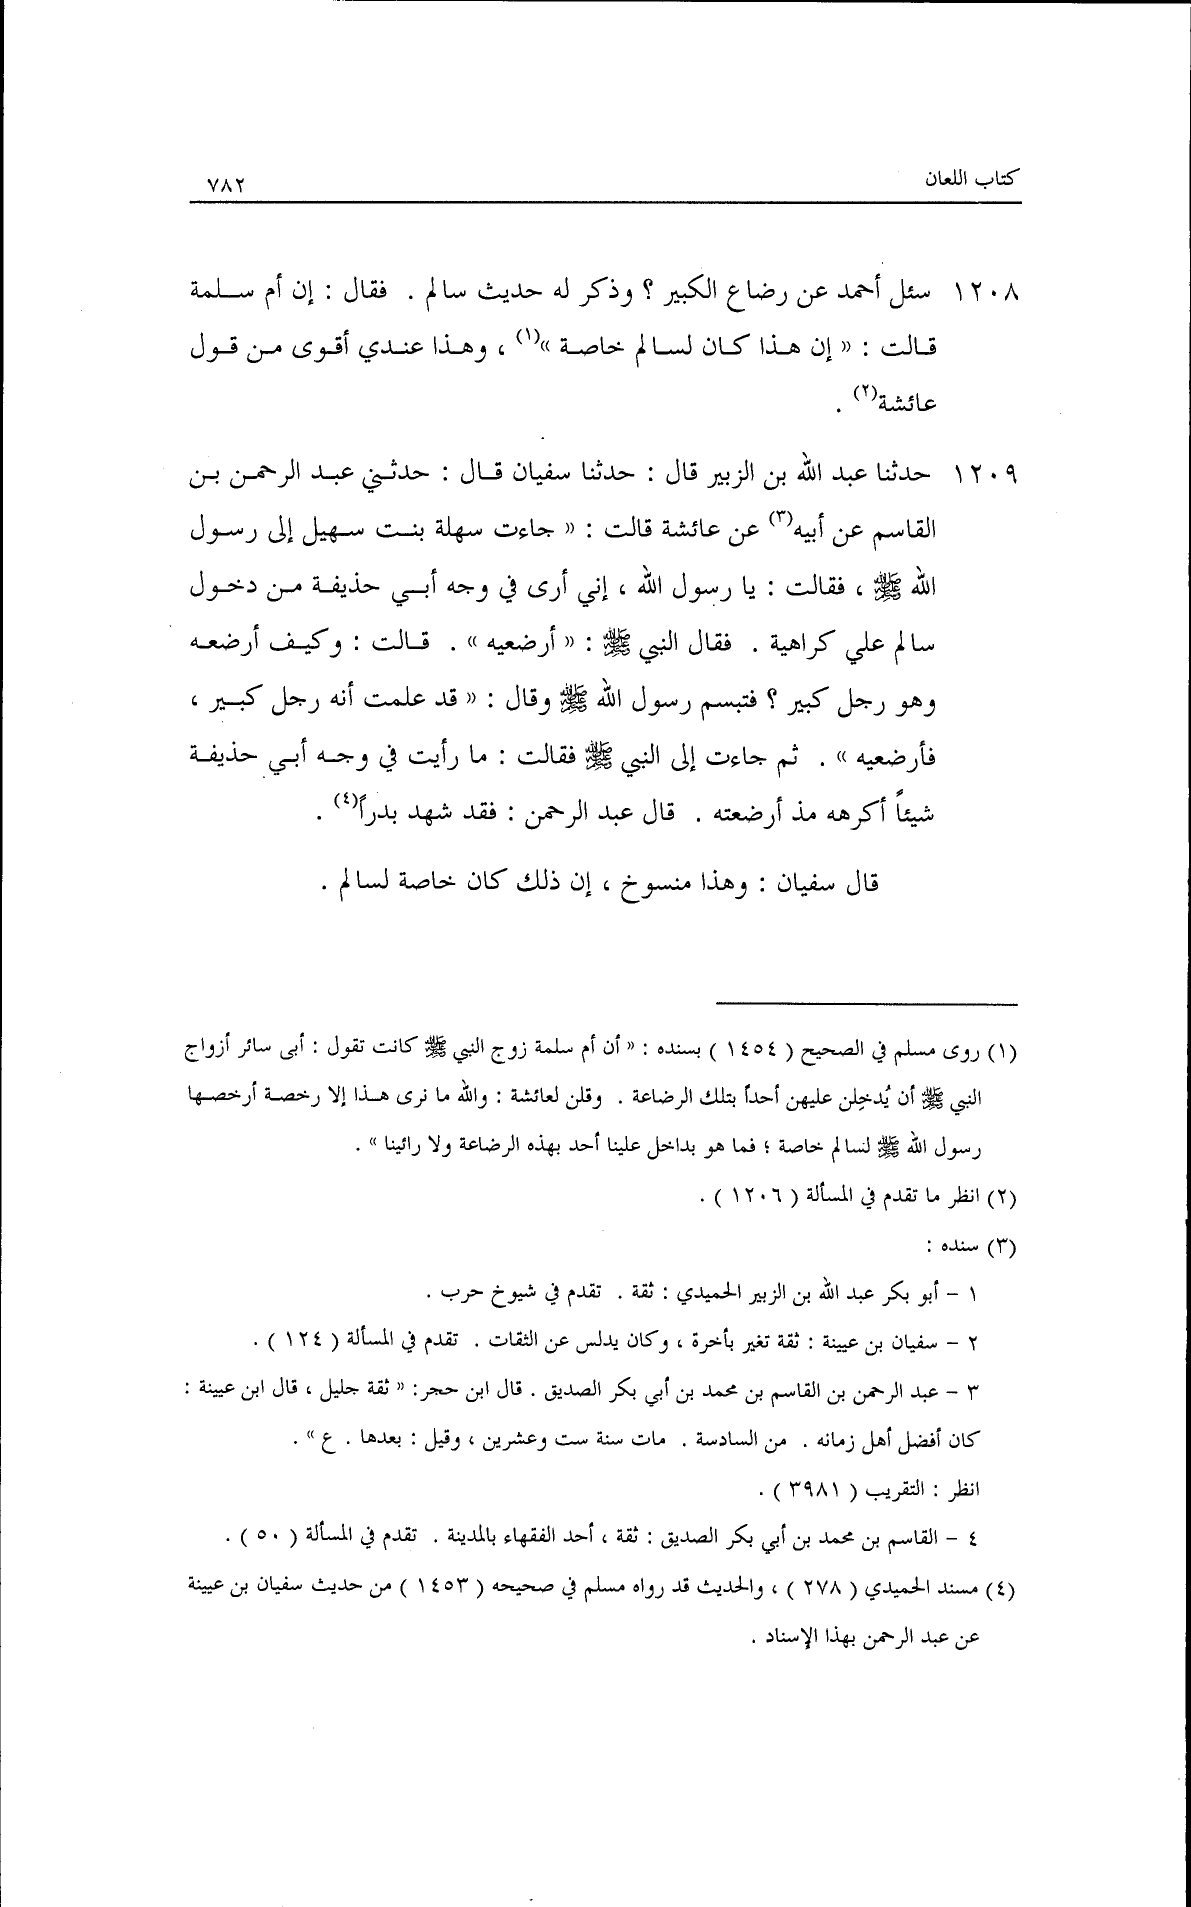 كتاب اللعان ٧٨٢
١٢٠٨ سئل أحمد عن رضاع الكبير ؟ وذكر له حديث سالم . فقال : إن أم سلمة
قالت : « إن هذا كان لسالم خاصة »(١) ، وهذا عندي أقوى من قول
عائشة(٢) .
١٢٠٩ حدثنا عبد الله بن الزبير قال : حدثنا سفيان قال : حدثني عبد الرحمن بن
القاسم عن أبيه(٣) عن عائشة قالت : « جاءت سهلة بنت سهيل إلى رسول
الله ﷺ ، فقالت : يا رسول الله ، إني أرى في وجه أبي حذيفة من دخول
سالم علي كراهية . فقال النبي ﷺ : « أرضعيه » . قالت : وكيف أرضعه
وهو رجل كبير ؟ فتبسم رسول الله ﷺ وقال : « قد علمت أنه رجل كبير ،
فأرضعيه » . ثم جاءت إلى النبي ﷺ فقالت : ما رأيت في وجه أبي حذيفة
شيئاً أكرهه مذ أرضعته . قال عبد الرحمن : فقد شهد بدراً(٤) .
قال سفيان : وهذا منسوخ ، إن ذلك كان خاصة لسالم .
(١) روى مسلم في الصحيح ( ١٤٥٤ ) بسنده : « أن أم سلمة زوج النبي ﷺ كانت تقول : أبى سائر أزواج
النبي ﷺ أن يُدخِلن عليهن أحداً بتلك الرضاعة . وقلن لعائشة : والله ما نرى هذا إلا رخصة أرخصها
رسول الله ﷺ لسالم خاصة ؛ فما هو بداخل علينا أحد بهذه الرضاعة ولا رائينا » .
(٢) انظر ما تقدم في المسألة ( ١٢٠٦ ) .
(٣) سنده :
١ - أبو بكر عبد الله بن الزبير الحميدي : ثقة . تقدم في شيوخ حرب .
٢ - سفيان بن عيينة : ثقة تغير بأخرة ، وكان يدلس عن الثقات . تقدم في المسألة ( ١٢٤ ) .
٣ - عبد الرحمن بن القاسم بن محمد بن أبي بكر الصديق . قال ابن حجر: « ثقة جليل ، قال ابن عيينة :
كان أفضل أهل زمانه . من السادسة . مات سنة ست وعشرين ، وقيل : بعدها . ع » .
انظر : التقريب ( ٣٩٨١ ) .
٤ - القاسم بن محمد بن أبي بكر الصديق : ثقة ، أحد الفقهاء بالمدينة . تقدم في المسألة ( ٥٠ ) .
(٤) مسند الحميدي ( ٢٧٨ ) ، والحديث قد رواه مسلم في صحيحه ( ١٤٥٣ ) من حديث سفيان بن عيينة
عن عبد الرحمن بهذا الإسناد .